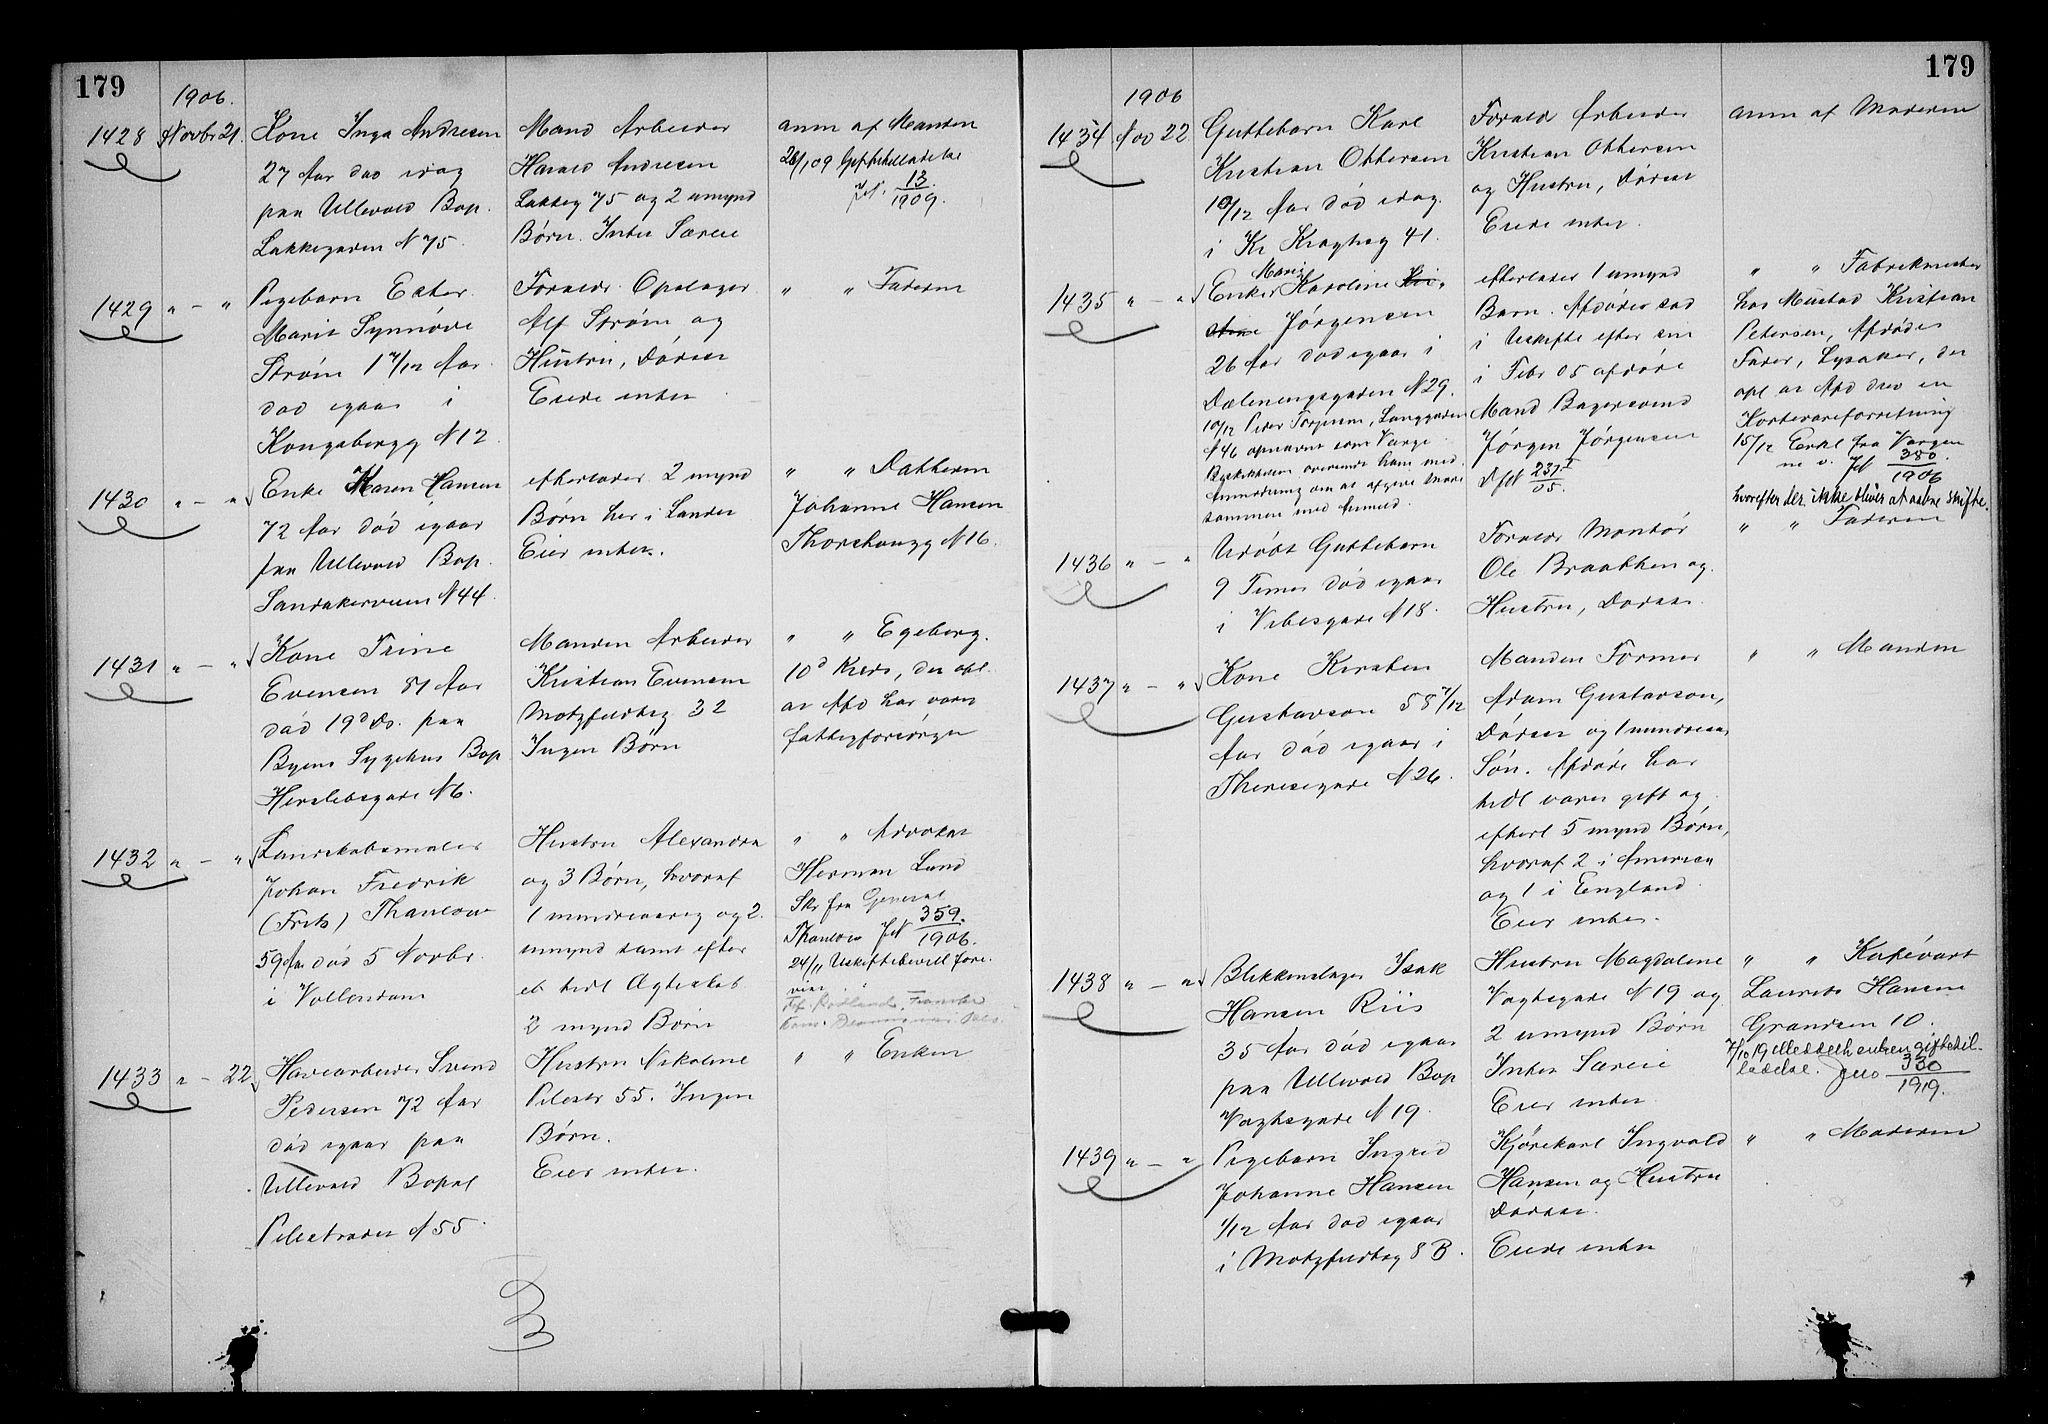 179
1906.
1428 Novbr 21.
Kone Inga Andresen
27 Aar død idag
paa Ullevold Bop.
Lakkegaden N 75.
Mand Arbeider
Harald Andresen
Lakkeg 75 og 2 umynd
Børn. Intet Særeie
anm af Manden
26/1 09 Giftetilladelse
JN. 13/1909.
1429 " — "
Pigebarn Ester
Marit Synnøve
Strøm 1 7/12 Aar
død igaar i
Kongsbergg N 12
Forældr Oplager
Alf Strøm og
Hustru, Døren
Eiede intet
" " Faderen
1430 " — "
Enke Karen Hansen
72 Aar død igaar
paa Ullevold Bop.
Sandakerveien N 44.
efterlader 2 mynd
Børn her i Landet
Eier intet.
" " Datteren
Johanne Hansen
Thorshaugg N 16.
1431 " — "
Kone Trine
Evensen 81 Aar
død 19d Ds. paa
Byens Sygehus Bop
Herslebsgade N 6.
Manden Arbeider
Kristian Evensen
Motzfeldtsg 32
Ingen Børn
" " Egeberg.
10d Kreds, der opl.
at Afd har været
fattigforsørget
1432 " — "
Landskabsmaler
Johan Fredrik
(Frits) Thaulow
59 Aar død 5 Novbr.
i Vollendam
Hustru Alexandra
og 3 Børn, hvoraf
1 mindreaarig og 2
umynd samt efter
et tidl Ægteskab
2 mynd Børn
" " Advokat
Herman Lund
Skr fra General
Thaulow JN 359/1906.
24/11 Uskiftebevill fore-
vist.
1433 " — 22
Havearbeider Svend
Pedersen 72 Aar
død igaar paa
Ullevold Bopæl
Pilestrædet N 55
Hustru Nikoline
Pilestr 55. Ingen
Børn.
Eier intet.
" " Enken
179
1906
1434 Nov 22
Guttebarn Karl
Kristian Ottersen
10/12 Aar død idag
i Kr Kroghsg 41.
Forældr Arbeider
Kristian Ottersen
og Hustru, Døren
Eiede intet.
anm af Moderen
1435 " — "
Enke Marie Karoline
Jørgensen
26 Aar død igaar i
Dælenengsgaden N 29.
10/12 Peder Torgersen, Langgaden
N 46 opnævnt som Værge
sammen med Anmeld.
efterlader 1 umynd
Barn. Afdøde sad
i Uskifte efter sin
i Febr 05 afdøde
Mand Bagersvend
Jørgen Jørgensen
DfN 237 I/05.
" " Fabrikmester
hos Mustad Kristian
Petersen, Afdødes
Fader, Lysaker, der
opl at Afd drev en
Kortevareforretning
15/12 Erkl fra Værgen
JN 380/1906
hvorefter der ikke bliver at aabne skifte.
1436 " — "
Udøbt Guttebarn
9 Timer død igaar
i Vibesgade N 18.
Forældr Montør
Ole Braathen og
Hustru, Døren.
" " Faderen
1437 " — "
Kone Kirsten
Gustavson 58 7/12
Aar død igaar i
Theresegade N 26.
Manden Former
Adam Gustavson,
Døren og 1 mindreaar
Søn. Afdøde har
tidl været gift og
efterl 5 mynd Børn,
hvoraf 2 i Amerika
og 1 i England.
Eier intet.
" " Manden
1438 " — "
Blikkenslager Isak
Hansen Riis
35 Aar død igaar
paa Ullevold Bop
Vogtsgade N 19.
Hustru Magdalene
Vogtsgade N 19 og
2 umynd Børn
Intet Særeie
Eier intet.
" " Kafévært
Laurits Hansen
Grændsen 10.
7/10 19 Meddelt enken giftetil-
ladelse. Jno 330/1919.
1439 " — "
Pigebarn Ingrid
Johanne Hansen
1/12 Aar død igaar
i Motzfeldtsg 8 B.
Kjørekarl Ingvald
Hansen og Hustru
Døren.
Eiede intet
" " Moderen